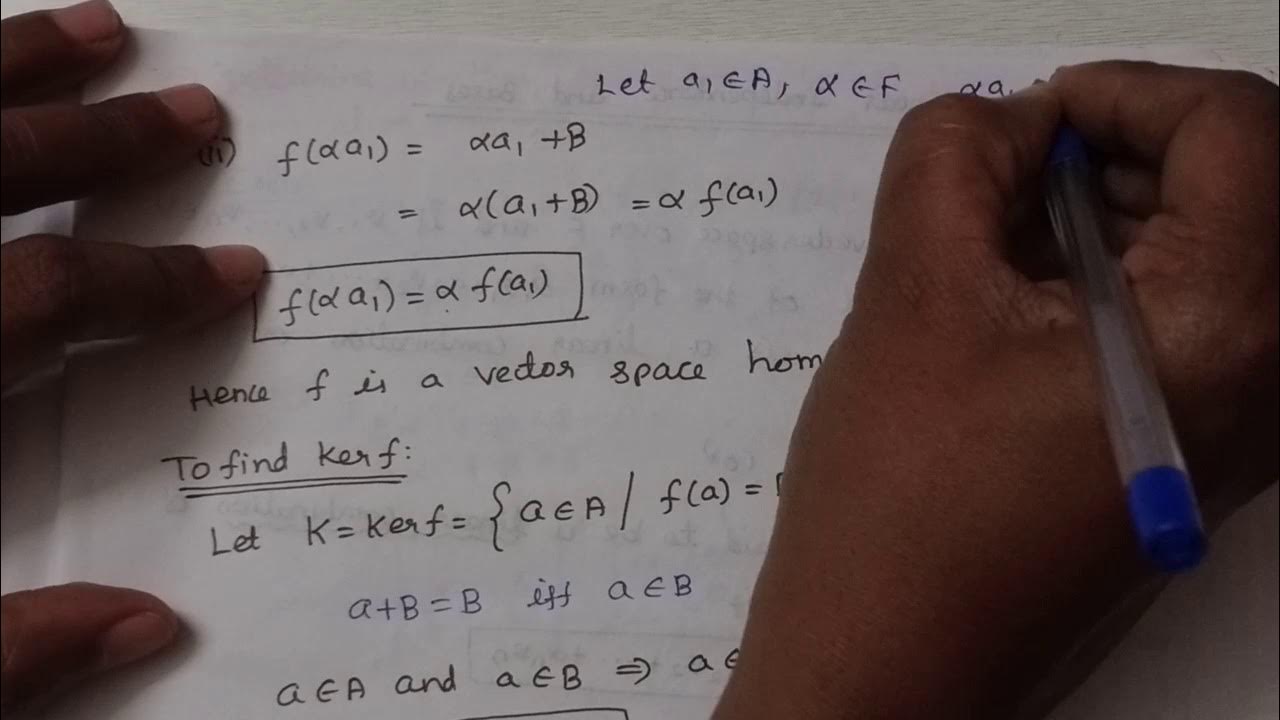 Let a₁ ∈ A, α ∈ F αa₁
(ii) f(αa₁) = αa₁ + B
= α(a₁ + B) = α f(a₁)
f(α a₁) = α f(a₁)
Hence f is a vector space hom
To find Ker f:
Let K = Ker f = { a ∈ A / f(a) =
a + B = B iff a ∈ B
a ∈ A and a ∈ B ⇒ a ∈